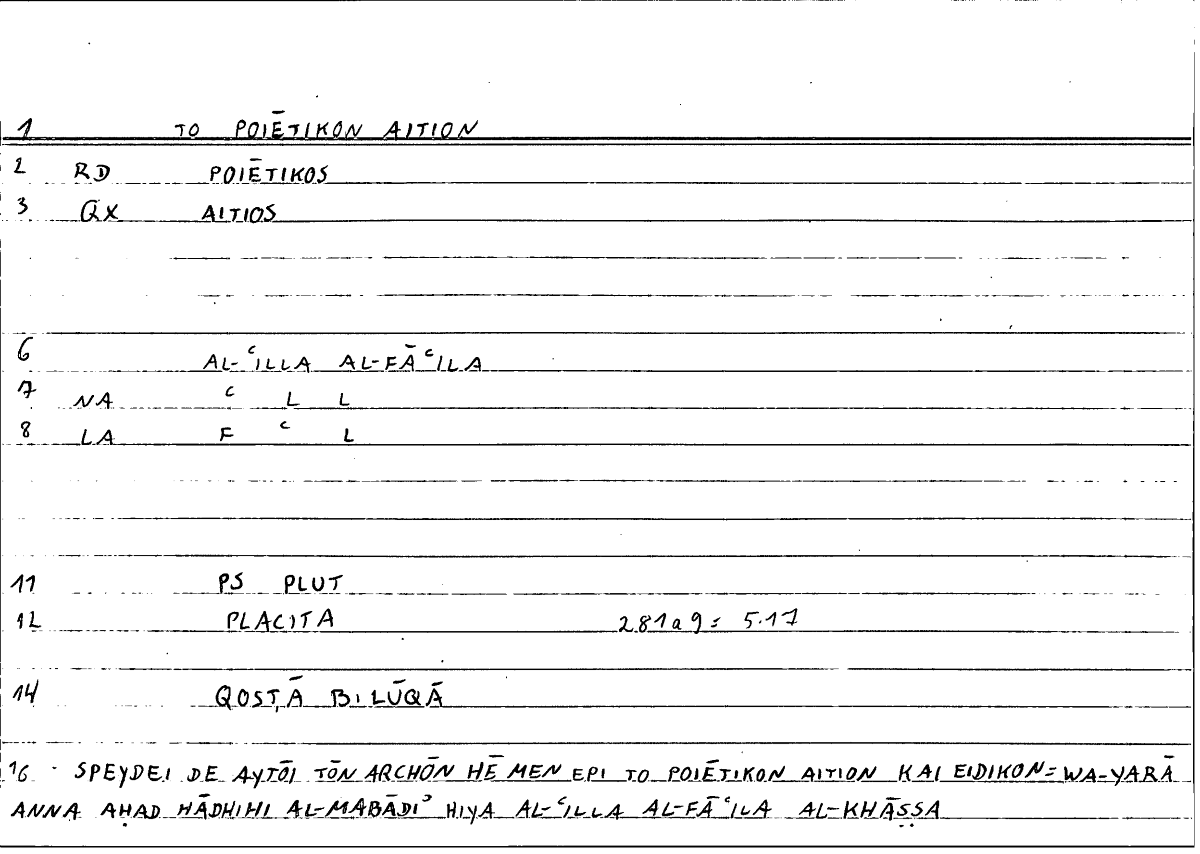 1 TO POIĒTIKON AITION
2 RD POIĒTIKOS
3 QX AITIOS
6 AL-ʿILLA AL-FĀʿILA
7 NA ʿ L L
8 LA F ʿ L
11 PS PLUT
12 PLACITA 281a9= 5.17
14 QOSṬĀ B. LŪQĀ
16 SPEYDEI DE AYTŌI TŌN ARCHŌN HĒ MEN EPI TO POIĒTIKON AITION KAI EIDIKON= WA-YARĀ
ANNA AḤAD HĀDHIHI AL-MABĀDIʾ HIYA AL-ʿILLA AL-FĀʿILA AL-KHĀṢṢA